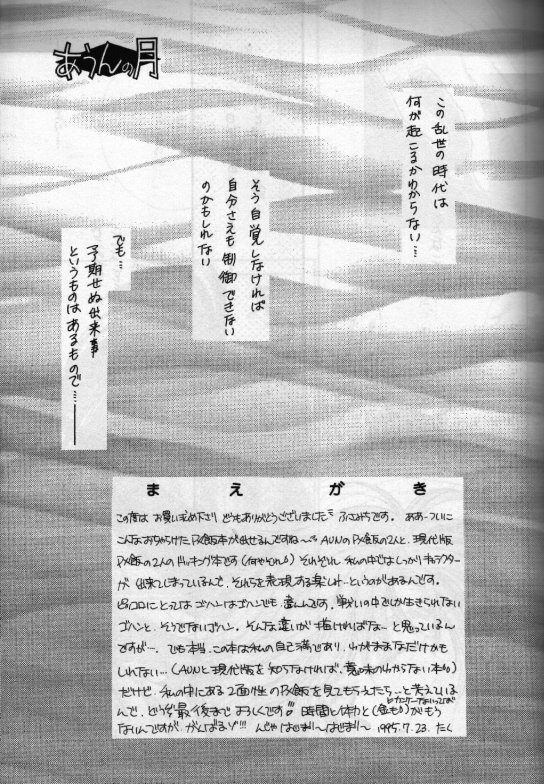 あうんの月
この乱世の時代は
何が起こるかわからない…
そう自覚しなければ
自分さえも制御できない
のかもしれない
でも…
予期せぬ出来事
というものはあるもので…――
まえがき
この度は お買い求め下さり どうもありがとうございました ふさみちです。 ああーついに
こんな おちゃらけた 飯本が出せるんですね〜 AUNの 飯の2人と、現代版
飯の2人のドッキング本です(何やそれ) それぞれ 私の中ではしっかりキャラクター
が 出来てしまっているんで、それらを表現する楽しみ…というのがあるんです。
ピッコロにとっては ゴハンはゴハンでも 違うんです。戦いの中でしか生きられない
ゴハンと、そうでないゴハン。そんな違いが 描ければな…と思っているん
ですが…。 でも本当、この本は私の自己満であり、わがままなだけかも
しれない…(AUNと現代版を知らなければ、意味のわからない本)
だけど、私の中にある2面性の 飯を見てもらえたら…と考えている
んで、どうぞ最後まで よろしくです!! 時間と体力と(金も)がもう
ないんですが がんばるゾ!!! んじゃ はじまり〜はじまり〜 1995.7.23. たく